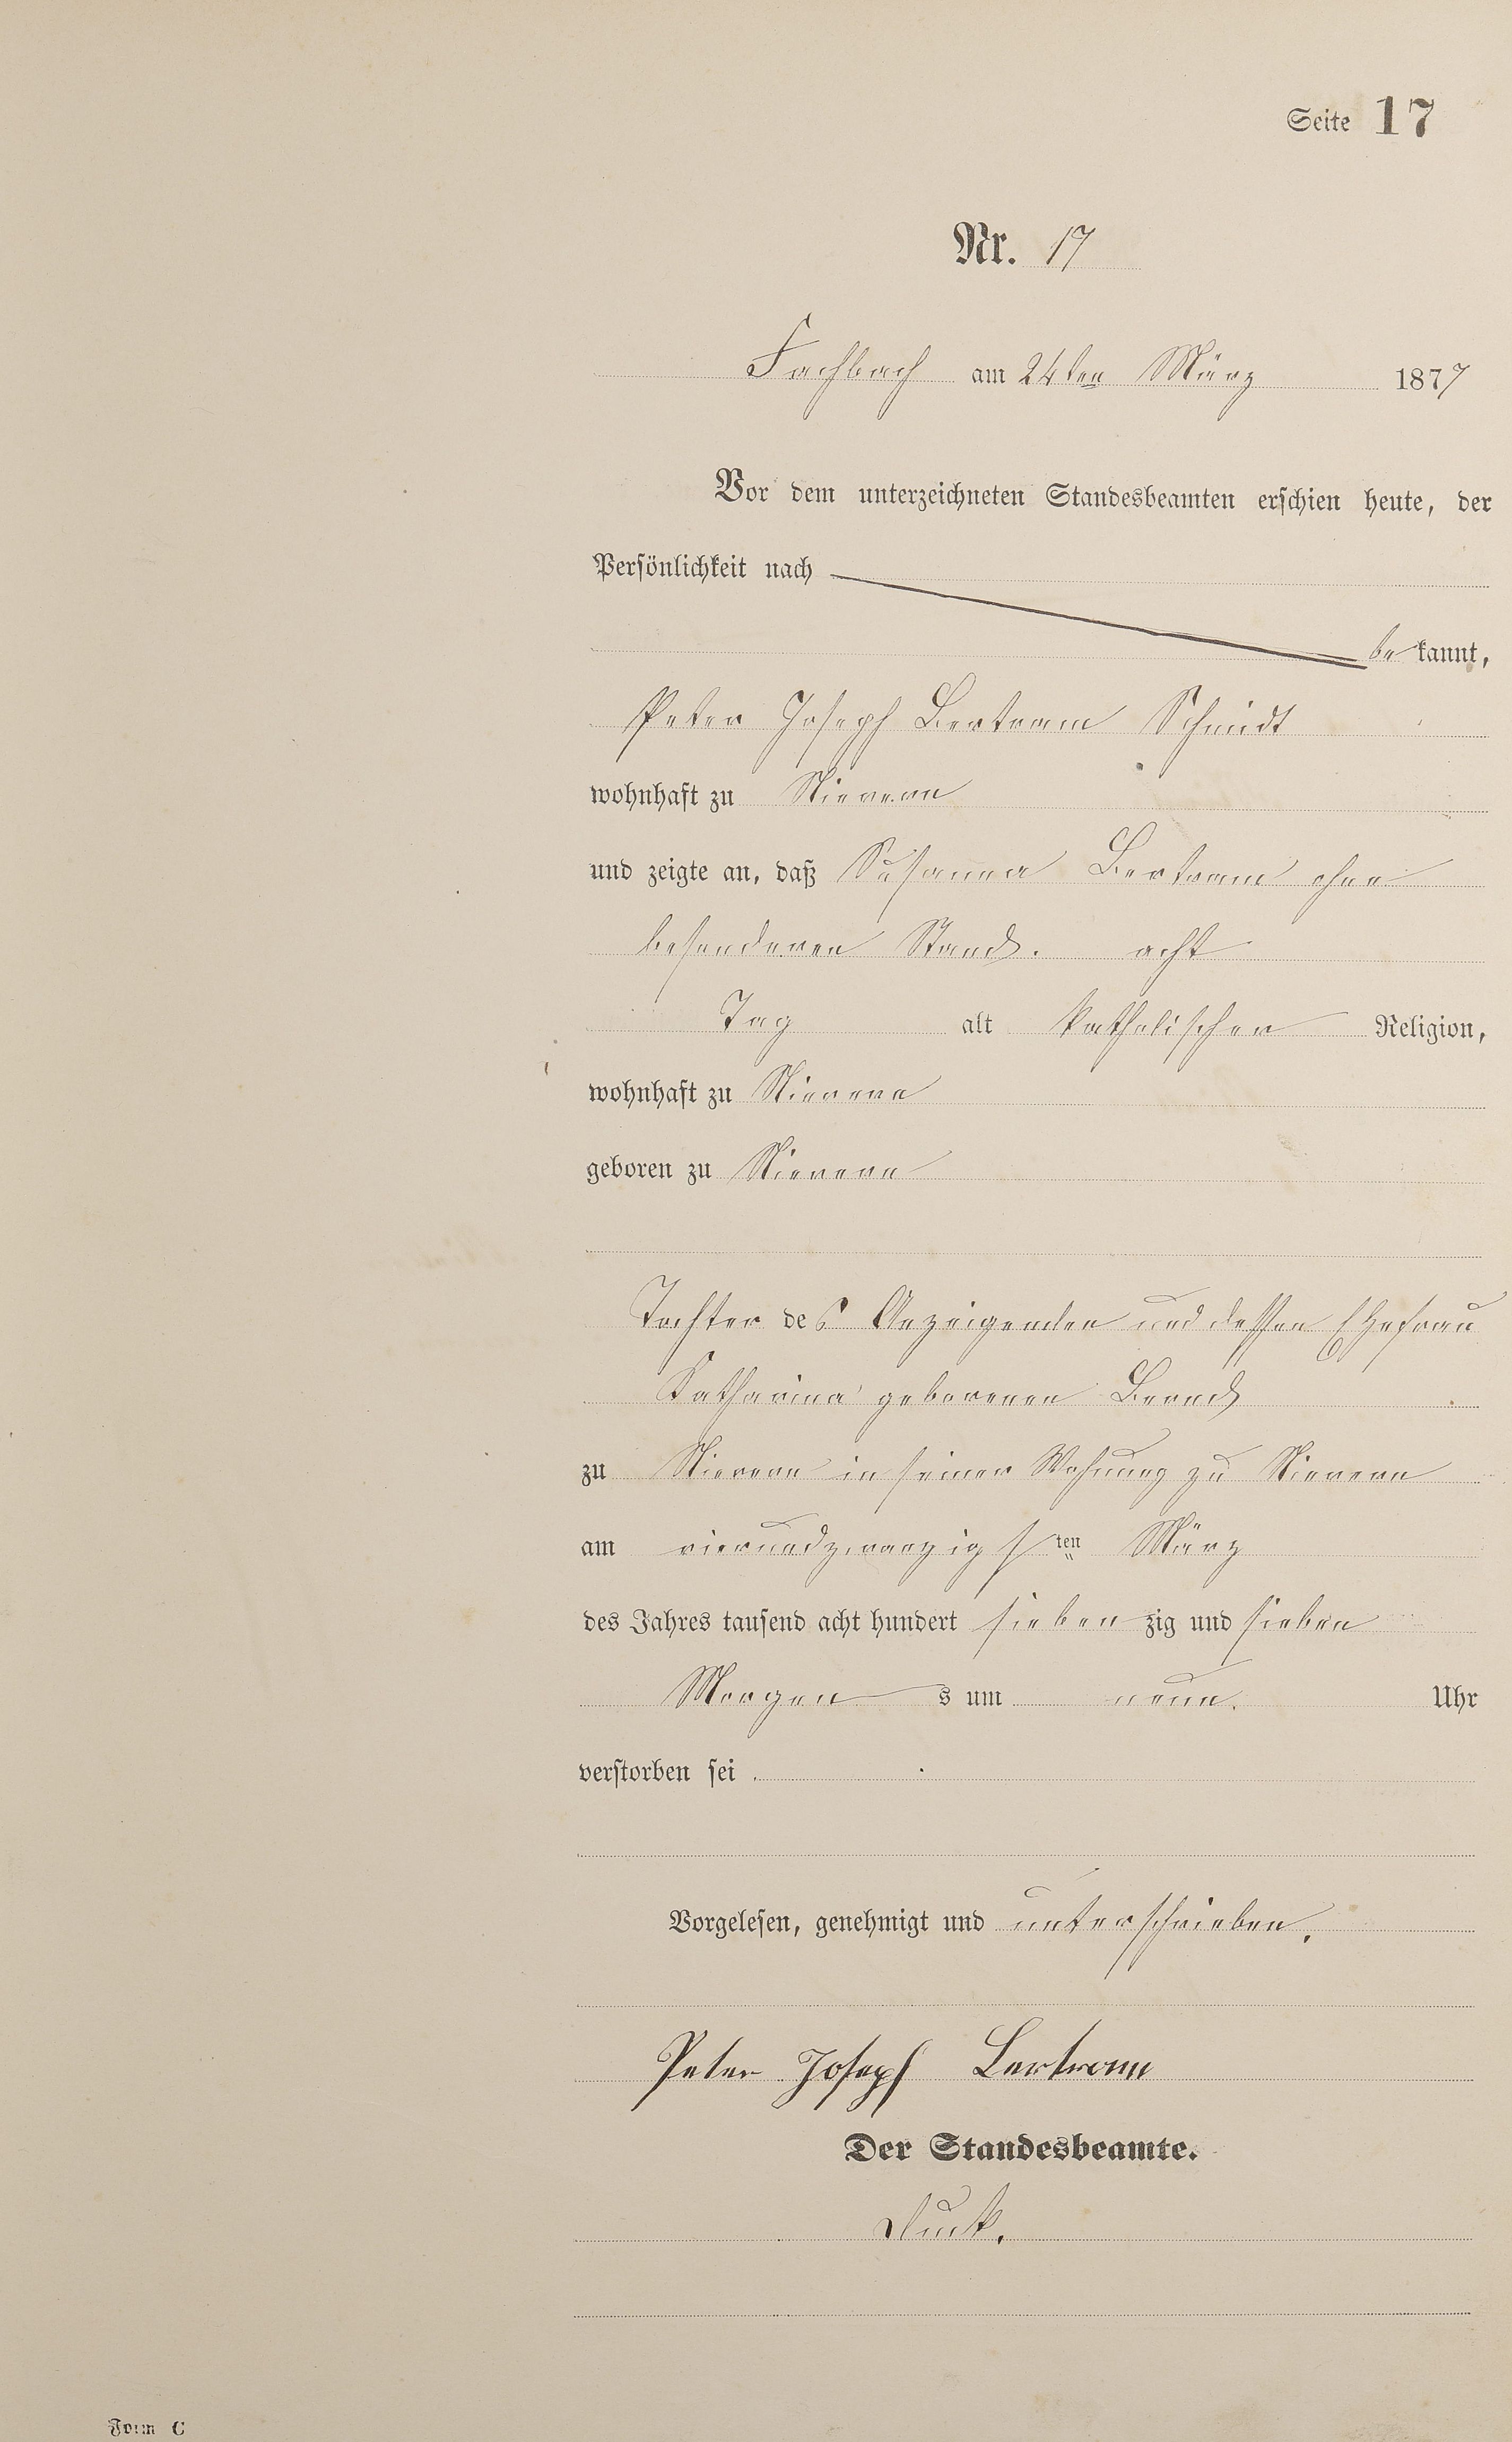 Seite 17
Nr. 17
Fachbach am 24ten März 1877
Vor dem unterzeichneten Standesbeamten erschien heute, der
Persönlichkeit nach
bekannt,
Peter Joseph Bertram Schmidt
wohnhaft zu Nievern
und zeigte an, daß Susanna Bertram ohne
besonderen Stand. acht
Tag alt katholischer Religion,
wohnhaft zu Nievern
geboren zu Nievern
Tochter des Anzeigenden und dessen Ehefrau
Katharina geborenen Bernd
zu Nievern in seiner Wohnung zu Nievern
am vierundzwanzigsten März
des Jahres tausend acht hundert siebenzig und sieben
Morgens um neun. Uhr
verstorben sei.
Vorgelesen, genehmigt und unterschrieben.
Peter Joseph Bertram
Der Standesbeamte.
Form C